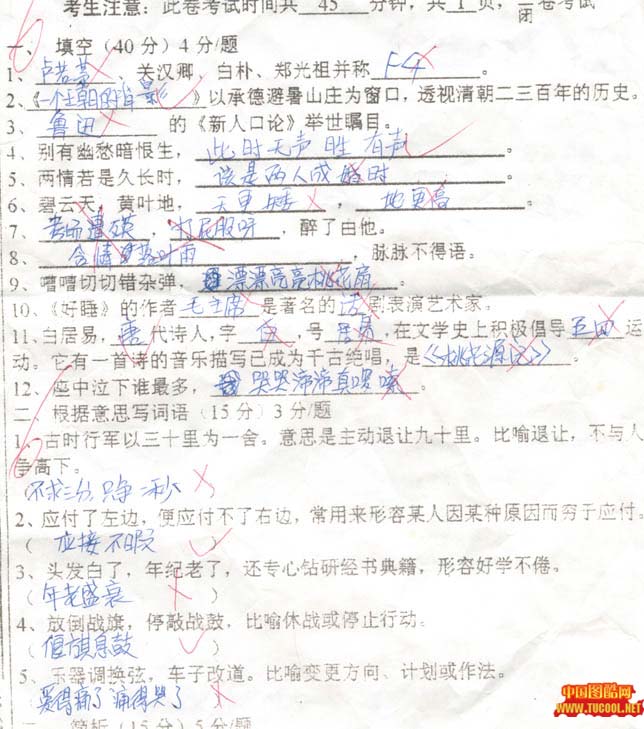 考生注意：此卷考试时间共 45 分钟，共 1 页，闭卷考试
一、填空（40分）4分/题
1、卢若菁、关汉卿，白朴、郑光祖并称 F4 。
2、《一个王朝的背影》以承德避暑山庄为窗口，透视清朝二三百年的历史。
3、鲁迅 的《新人口论》举世瞩目。
4、别有幽愁暗恨生，此时无声胜有声。
5、两情若是久长时，该是两人成婚时。
6、碧云天，黄叶地，天更矮，地更高。
7、考场遭殃，打屁股呀，醉了由他。
8、含情 落叶雨，脉脉不得语。
9、嘈嘈切切错杂弹，漂漂亮亮桃花扇。
10、《好睡》的作者 毛主席 是著名的 话 剧表演艺术家。
11、白居易，唐 代诗人，字 白，号 居易，在文学史上积极倡导 五四 运
动。它有一首诗的音乐描写已成为千古绝唱，是《桃花源记》。
12、座中泣下谁最多，哭哭啼啼真啰嗦。
二 根据意思写词语（15分）3分/题
1、古时行军以三十里为一舍。意思是主动退让九十里。比喻退让，不与人
争高下。
（不求三分 只争二秒 ）
2、应付了左边，便应付不了右边，常用来形容某人因某种原因而穷于应付。
（ 应接不暇 ）
3、头发白了，年纪老了，还专心钻研经书典籍，形容好学不倦。
（年老盛衰 ）
4、放倒战旗，停敲战鼓，比喻休战或停止行动。
（偃旗息鼓 ）
5、乐器调换弦，车子改道。比喻变更方向、计划或作法。
哭得痛了 痛得哭了 ）
简析（15分）5分/题
中国图酷网
WWW.TUCOOL.NET